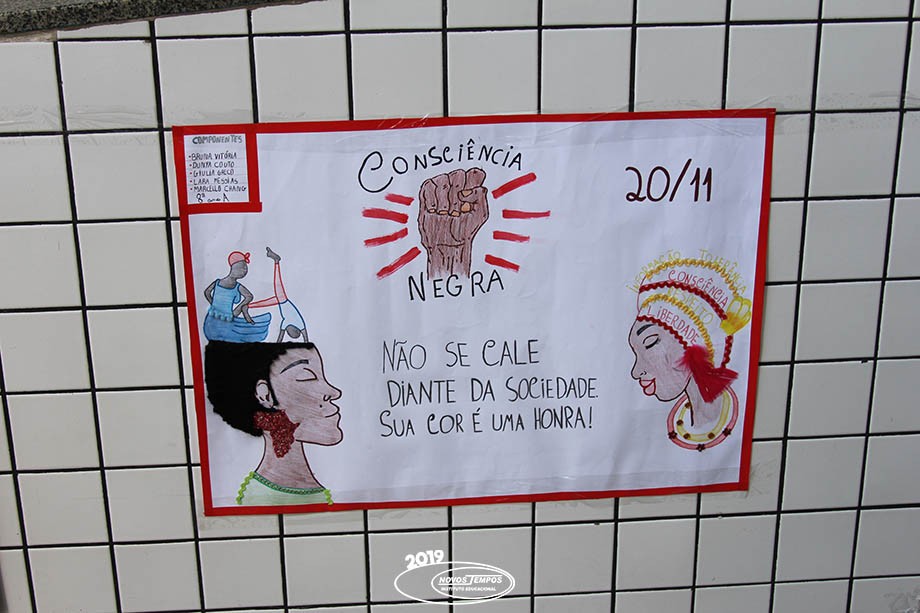 COMPONENTES
• BRUNA VITÓRIA
• DUNYA COUTO
• GIULIA GRECO
• LARA MESSIAS
• MARCELLO CHANG
8º ano A
CONSCIÊNCIA
NEGRA
20/11
NÃO SE CALE
DIANTE DA SOCIEDADE.
SUA COR É UMA HONRA!
TOLERÂNCIA
CONSCIÊNCIA
LIBERDADE
2019
NOVOS TEMPOS
INSTITUTO EDUCACIONAL